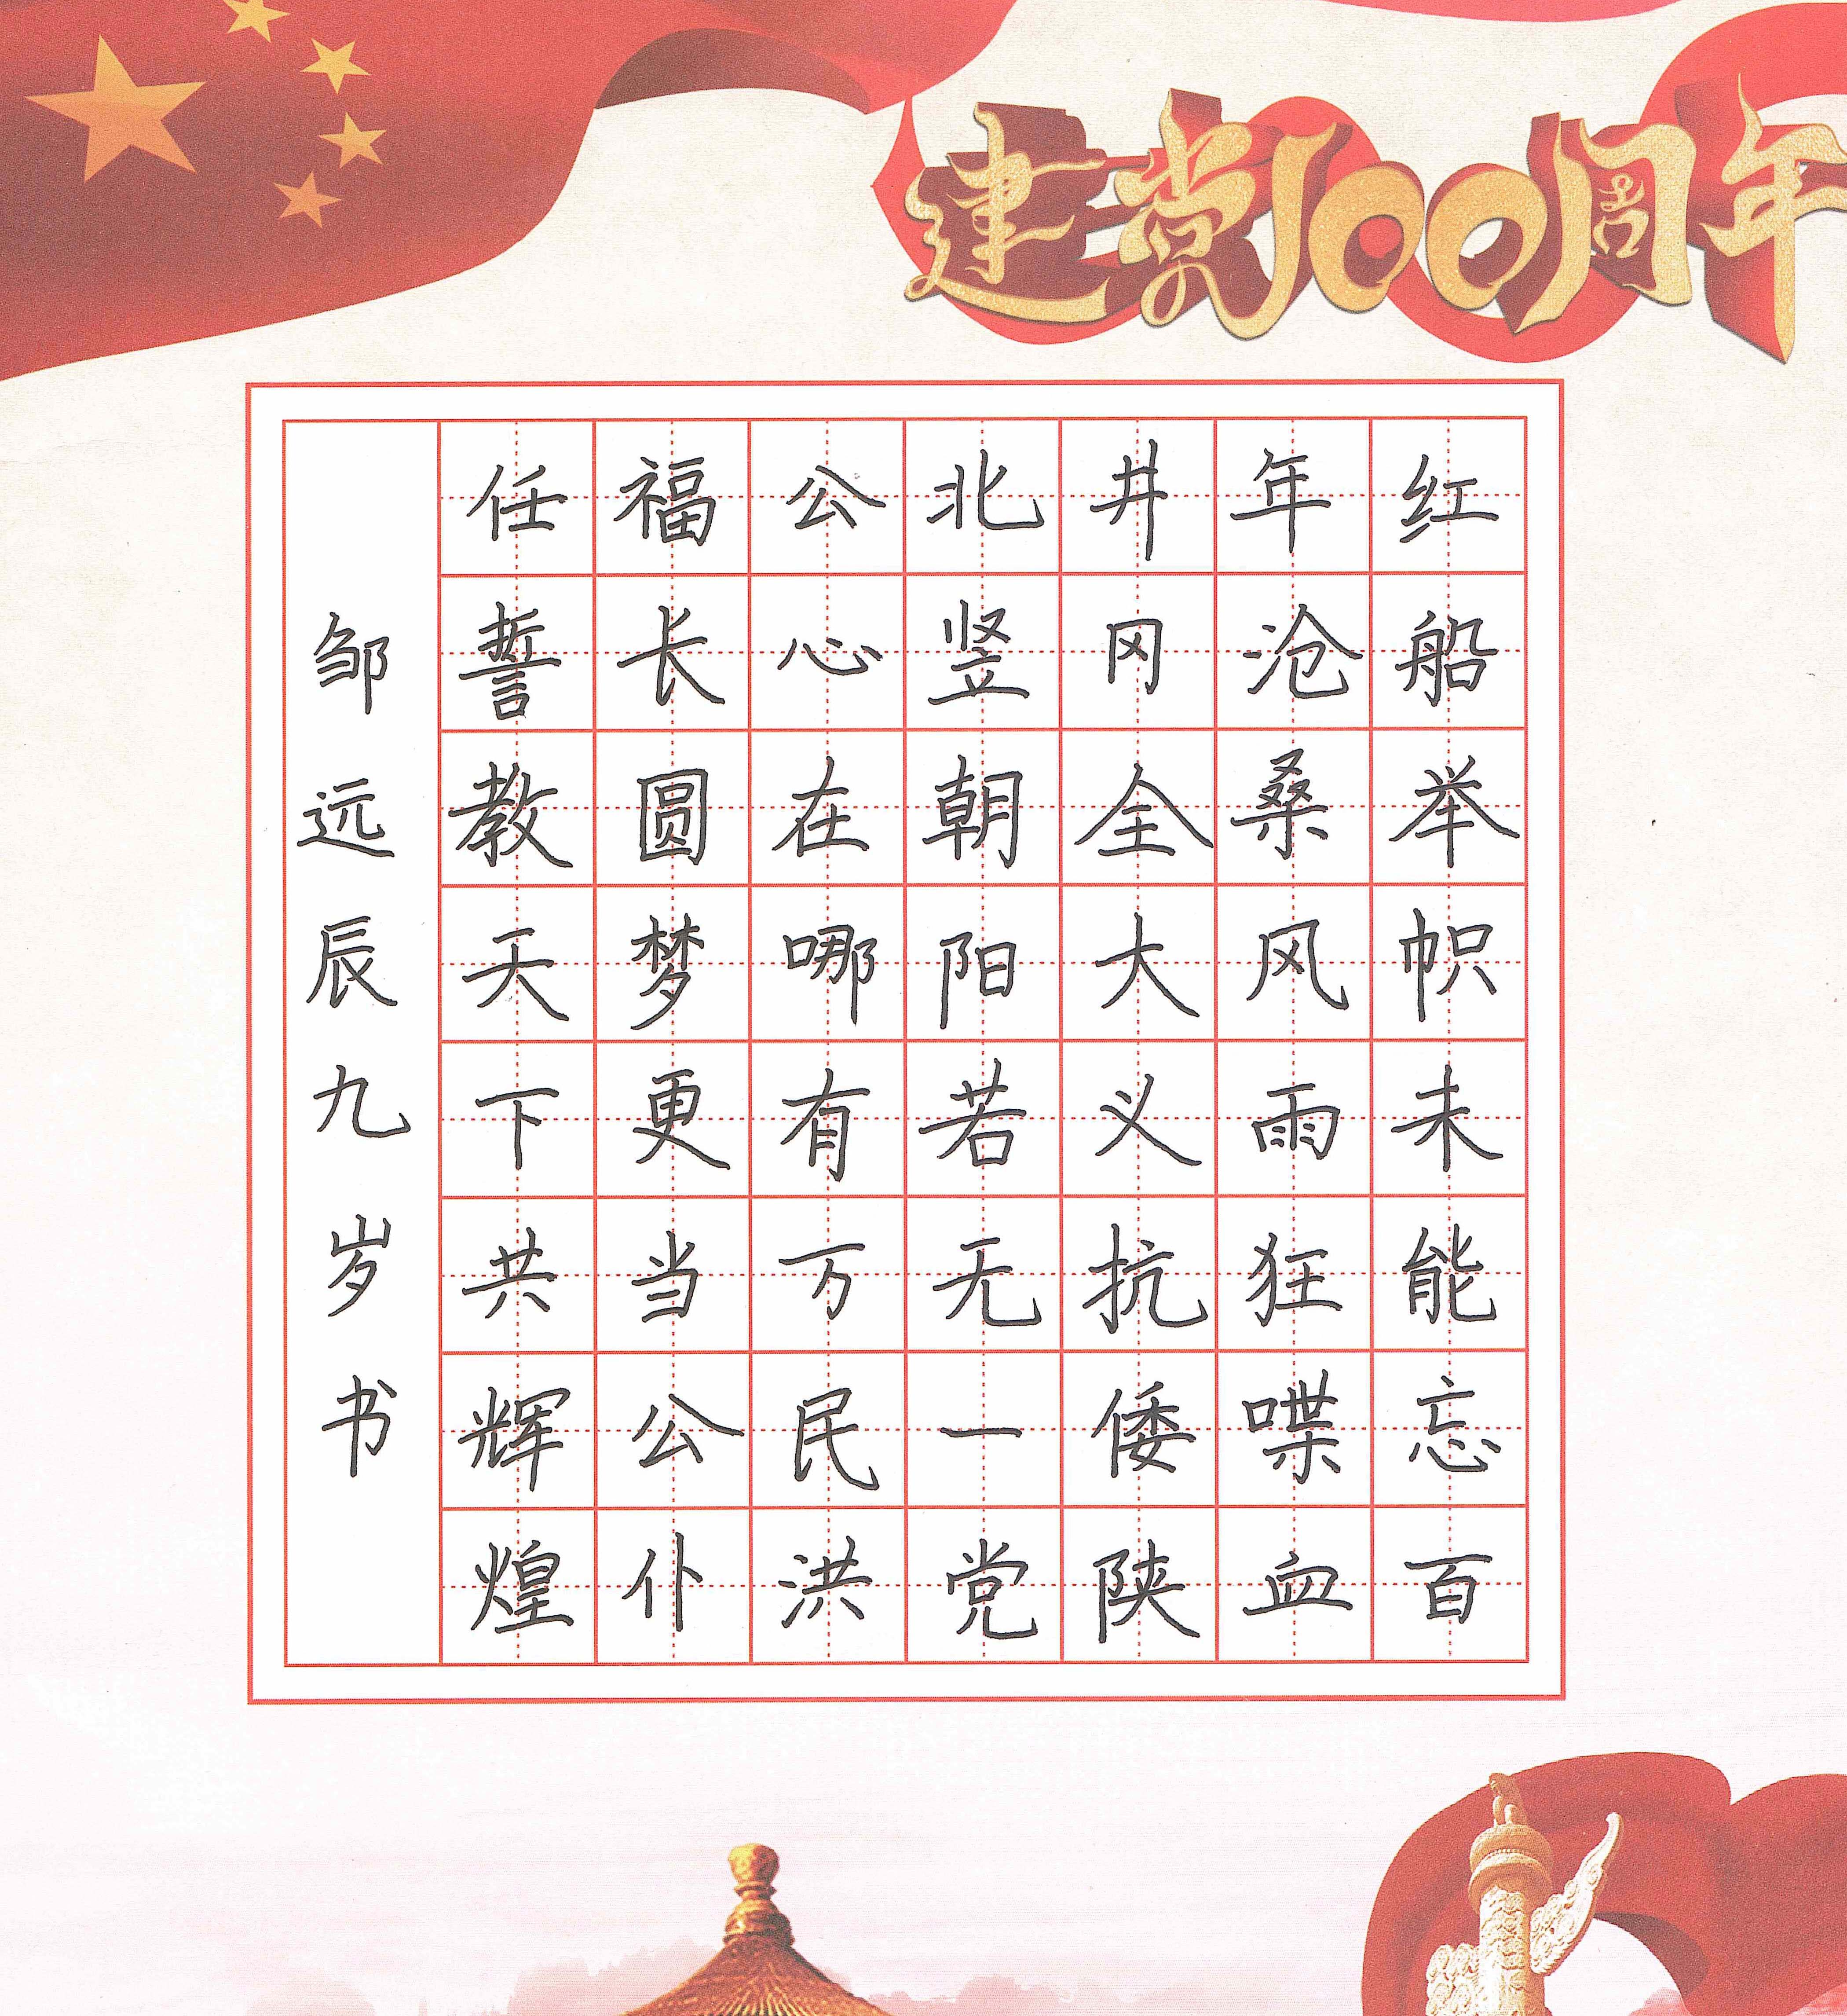 建党100周年
红船举帜未能忘百
年沧桑风雨狂喋血
井冈全大义抗倭陕
北竖朝阳若无一党
公心在哪有万民洪
福长圆梦更当公仆
任誓教天下共辉煌
邹远辰九岁书